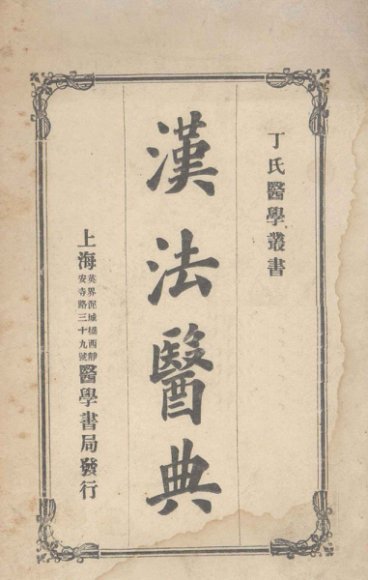 丁氏醫學叢書
漢法醫典
上海英界泥城橋西靜安寺路三十九號醫學書局發行